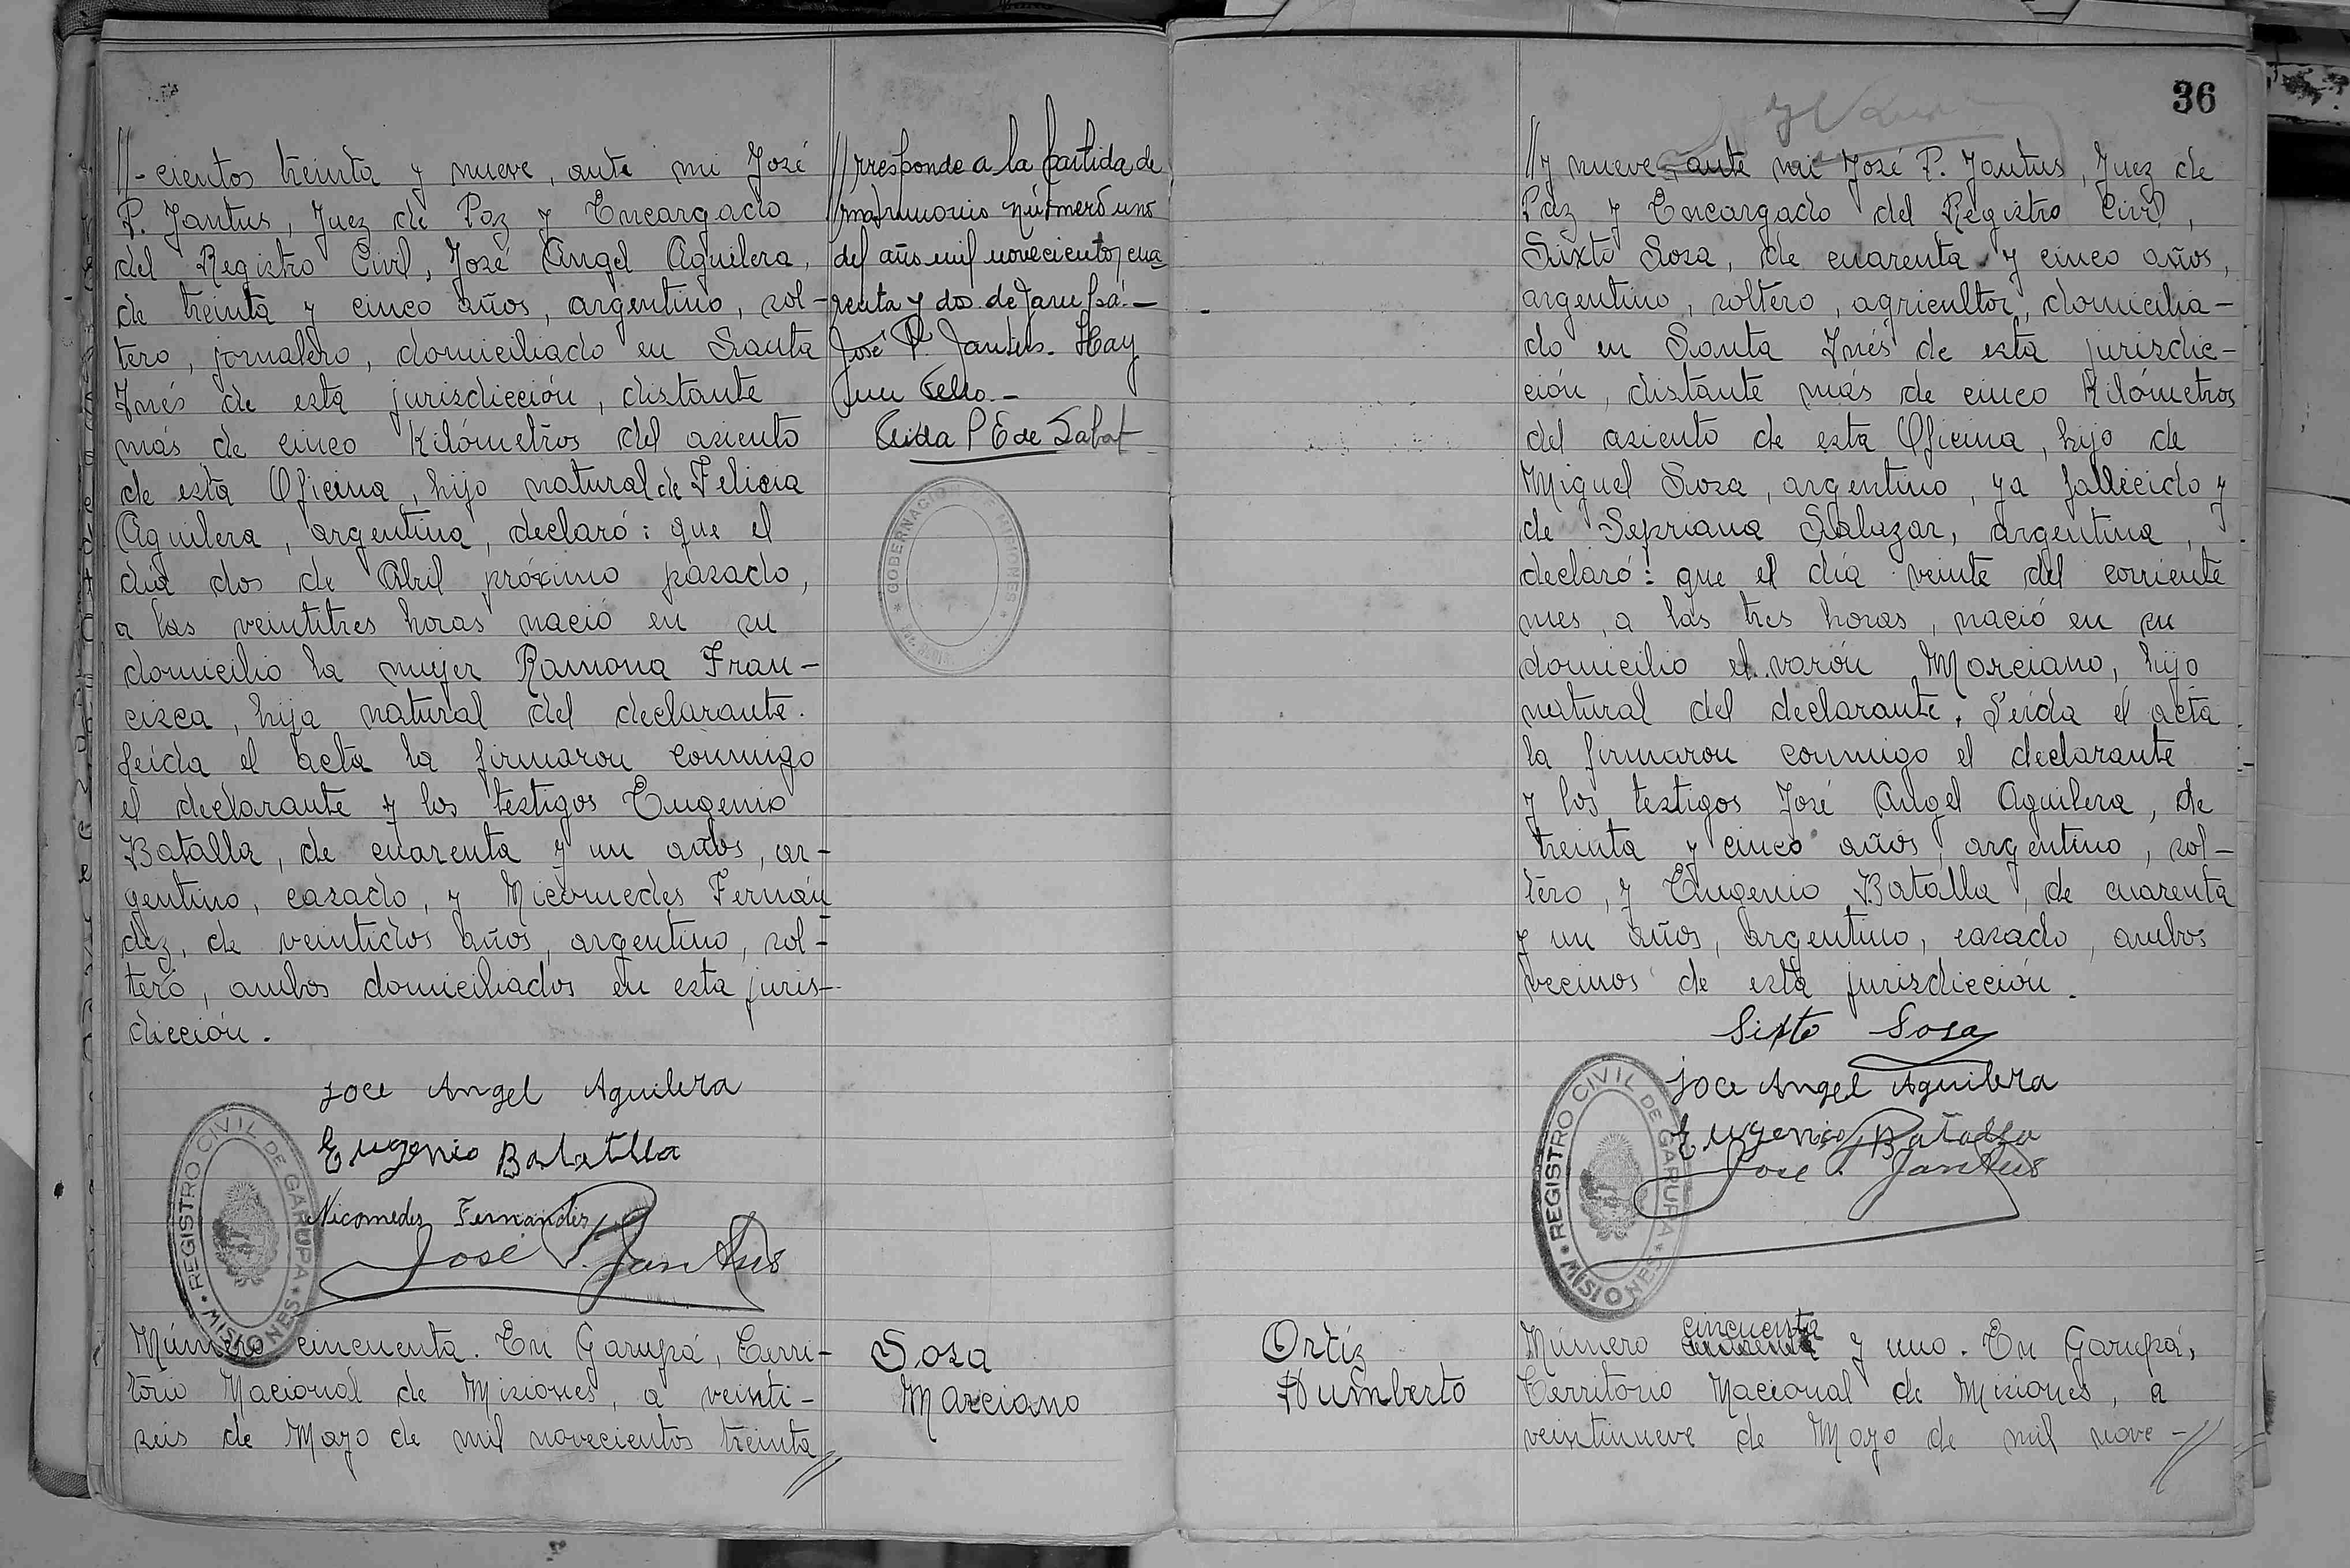 //-cientos treinta y nueve, ante mi José
P. Jantus, Juez de Paz y Encargado
del Registro Civil, José Angel Aguilera,
de treinta y cinco años, argentino, sol-
tero, jornalero, domiciliado en Santa
Inés de esta jurisdicción, distante
más de cinco Kilómetros del asiento
de esta Oficina, hijo natural de Felicia
Aguilera, argentina, declaró: que el
día dos de Abril próximo pasado,
a las veintitres horas nació en su
domicilio la mujer Ramona Fran-
cisca, hija natural del declarante.
Leída el acta la firmaron conmigo
el declarante y los testigos Eugenio
Batalla, de cuarenta y un años, ar-
gentino, casado, y Nicomedes Fernán
dez, de veintidos años, argentino, sol-
tero, ambos domiciliados en esta juris-
dicción.
Joce Angel Aguilera
Eugenio Batatlla
Nicomedes Fernandez
José P. Jantus
REGISTRO CIVIL DE GARUPA
MISIONES
Número cincuenta. En Garupá, Terri-
torio Nacional de Misiones, a veinti-
seis de Mayo de mil novecientos treinta//
//rresponde a la partida de
matrimonio número uno
del año mil novecientos cua
renta y dos de Garupá.-
José P. Jantus. Hay
un sello.-
P E de Sabat
GOBERNACION DE MISIONES
Sosa
Marciano
Ortíz
Humberto
36
//y nueve, ante mi José P. Jantus, Juez de
Paz y Encargado del Registro Civil,
Sixto Sosa, de cuarenta y cinco años,
argentino, soltero, agricultor, domicilia-
do en Santa Inés de esta jurisdic-
ción, distante más de cinco Kilómetros
del asiento de esta Oficina, hijo de
Miguel Sosa, argentino, ya fallecido y
de Sepriana Salazar, argentina,
declaró: que el día veinte del corriente
mes, a las tres horas, nació en su
domicilio el varón Marciano, hijo
natural del declarante. Leída el acta
la firmaron conmigo el declarante
y los testigos José Angel Aguilera, de
treinta y cinco años, argentino, sol-
tero, y Eugenio Batalla, de cuarenta
y un años, argentino, casado, ambos
vecinos de esta jurisdicción.
Sixto Sosa
Joce Angel Aguilera
Eugenio Batalla
José P. Jantus
REGISTRO CIVIL DE GARUPA
MISIONES
Número cincuenta y uno. En Garupá,
Territorio Nacional de Misiones, a
veintinueve de Mayo de mil nove-//